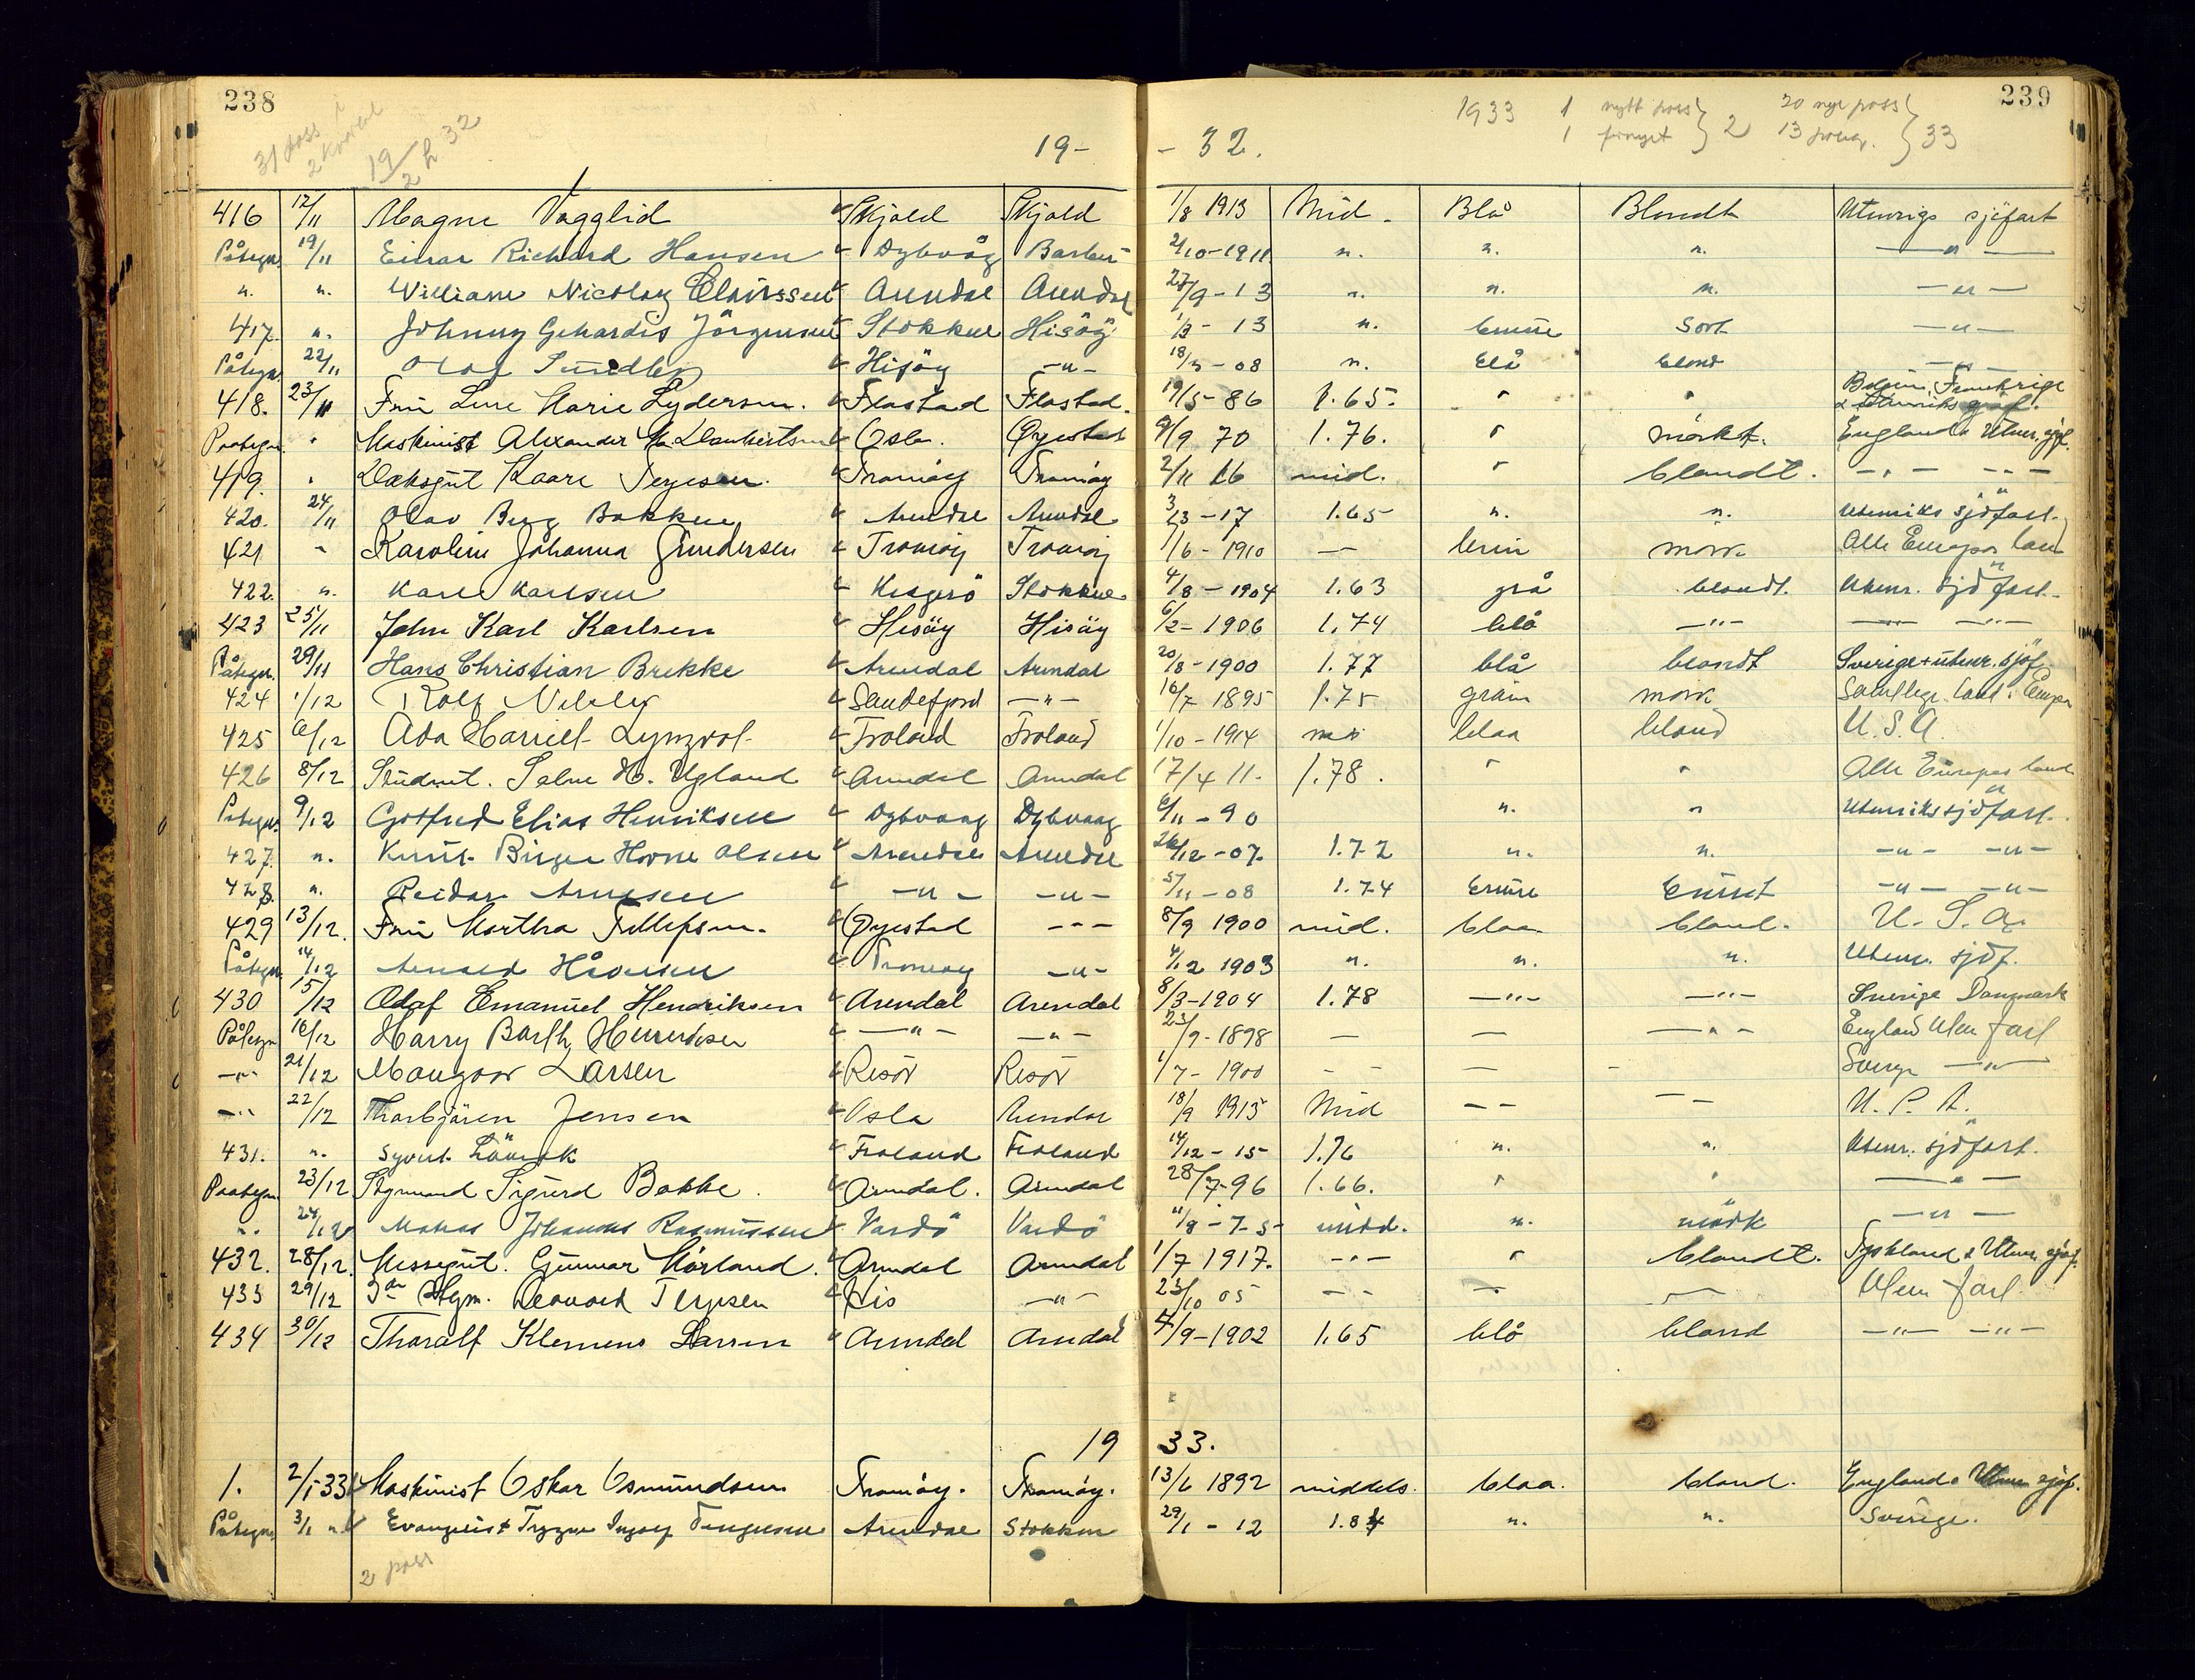 238
239
31 pass i
2 kontrol
19/2 h 32
1933 1 nytt pass } 2 20 nye pass } 33
1 fornyet 13 fornny.
19- - 32.
416 12/11 Magne Vagglid Skjold Skjold 1/8 1913 Mid. Blå Blondt Utenrigs sjöfart
Påtegn. 19/11 Einar Richard Hansen Dybvåg Barbu 2/10-1911 n. n. n. —"—
n. n. William Nicolay Claussen Arendal Arendal 27/9-13 n. n. n. —"—
417. n. Johnny Gerhardis Jörgensen Stokken Hisöy 1/3-13 n. brune Sort —"—
Påtegn. 22/11 Olaf Sundley Hisöy —"— 18/3-08 n. blå blond —"—
418. 23/11 Fru Lene Marie Lydersen. Flostad Flostad. 19/5-86 1.65. " " Belgien Frankrige & Utenriks sjöf.
Paategn. " Maskinist Alexander Lambertsen Oslo. Øyestad 9/9 70 1.76. " mörkt. England & Utenr. sjöf.
419. " Dæksgut Kaare Terjesen. Tromöy Tromöy 2/11 16 mid. " blondt. —"— —"—
420. 24/11 Olav Berg Bakken Arendal Arendal 3/3-17 1.65 n. n. Utenriks sjöfart.
421 " Karoline Johanna Gundersen Tromöy Tromöy 1/6-1910 — brun mörk Alle Europas land
422. n. Karl Karlsen Kragerö Stokken 4/8-1904 1.63 grå blondt. Utenr. sjöfart.
423 25/11 John Karl Karlsen Hisöy Hisöy 6/2-1906 1.74 blå —"— —"— —"—
Påtegn. 29/11 Hans Christian Brekke Arendal Arendal 20/8-1900 1.77 blå blondt Sverige + utenr. sjöf.
424 1/12 Rolf Sandefjord —"— 16/7 1895 1.75 mörk Samtlige land i Europa
425 6/12 Ada Harriet Froland Froland 1/10-1914 mid blaa blond U.S.A.
426 8/12 Student. H. Ugland Arendal Arendal 17/4 11. 1.78. " " Alle Europas land
Påtegn. 9/12 Gotfred Elias Henriksen Dybvaag Dybvaag 6/11-90 n. " Utenriks sjöfart.
427. n. Knut Birger Hovne Olsen Arendal Arendal 26/12-07. 1.72 n. n. —"— —"—
428. n. Reidar Arnesen —"— —"— 5/11-08 1.74 brune brunt —"— —"—
429 13/12. Fru Martha Tellefsen. Øyestad --- 8/9 1900 mid. blaa. blond. U.S.A.
Påtegn. 14/12 Arnold Håvesen Tromöy —"— 4/12 1903 n. n. n. Utenr. sjöf.
430 15/12 Olaf Emanuel Hendriksen Arendal Arendal 8/3-1904 1.78 —"— —"— Sverige Danmark
Påtegn 16/12 Harry Barth Henriksen —"— —"— 23/9-1898 — — —"— England Uten fart
—"— 21/12 Mangor Larsen Risör Risör 1/7-1900 -- — - Sverige —"—
—"— 22/12 Thorbjören Jensen Oslo Arendal 18/9 1915 Mid -- -- U.S.A.
431. n. Syvert Lövrak Froland Froland 14/12-15 1.76 n. n. Utenr. sjöfart.
Paategn 23/12 Sigmund Sigurd Bakke. Arendal. Arendal 28/7-96 1.66. " " —"—
n. 24/12 Matias Johannes Rasmussen Vardö Vardö 11/8-75 midd. n. mörk —"—
432. 28/12. Messegut. Gunnar Hörland. Arendal Arendal 1/7 1917. --- " blondt. Tyskland & Utenr. sjöf.
433 29/12 Leonard Terjesen His —"— 23/10 05 -- — — Uten fart.
434 30/12 Tharalf Klemens Larsen Arendal Arendal 4/9-1902 1.65 blå blond —"— —"—
19 33.
1. 2/1 33 Maskinist Oskar Osmundsen Tromöy. Tromöy. 13/6 1892 middels. blaa. blond. England & Utenr. sjöf.
Påtegn. 3/1 n. Evangelist Trygve Ingolf Tengesen Arendal Stokken 29/1-12 1.84 n. n. Sverige.
2 pass